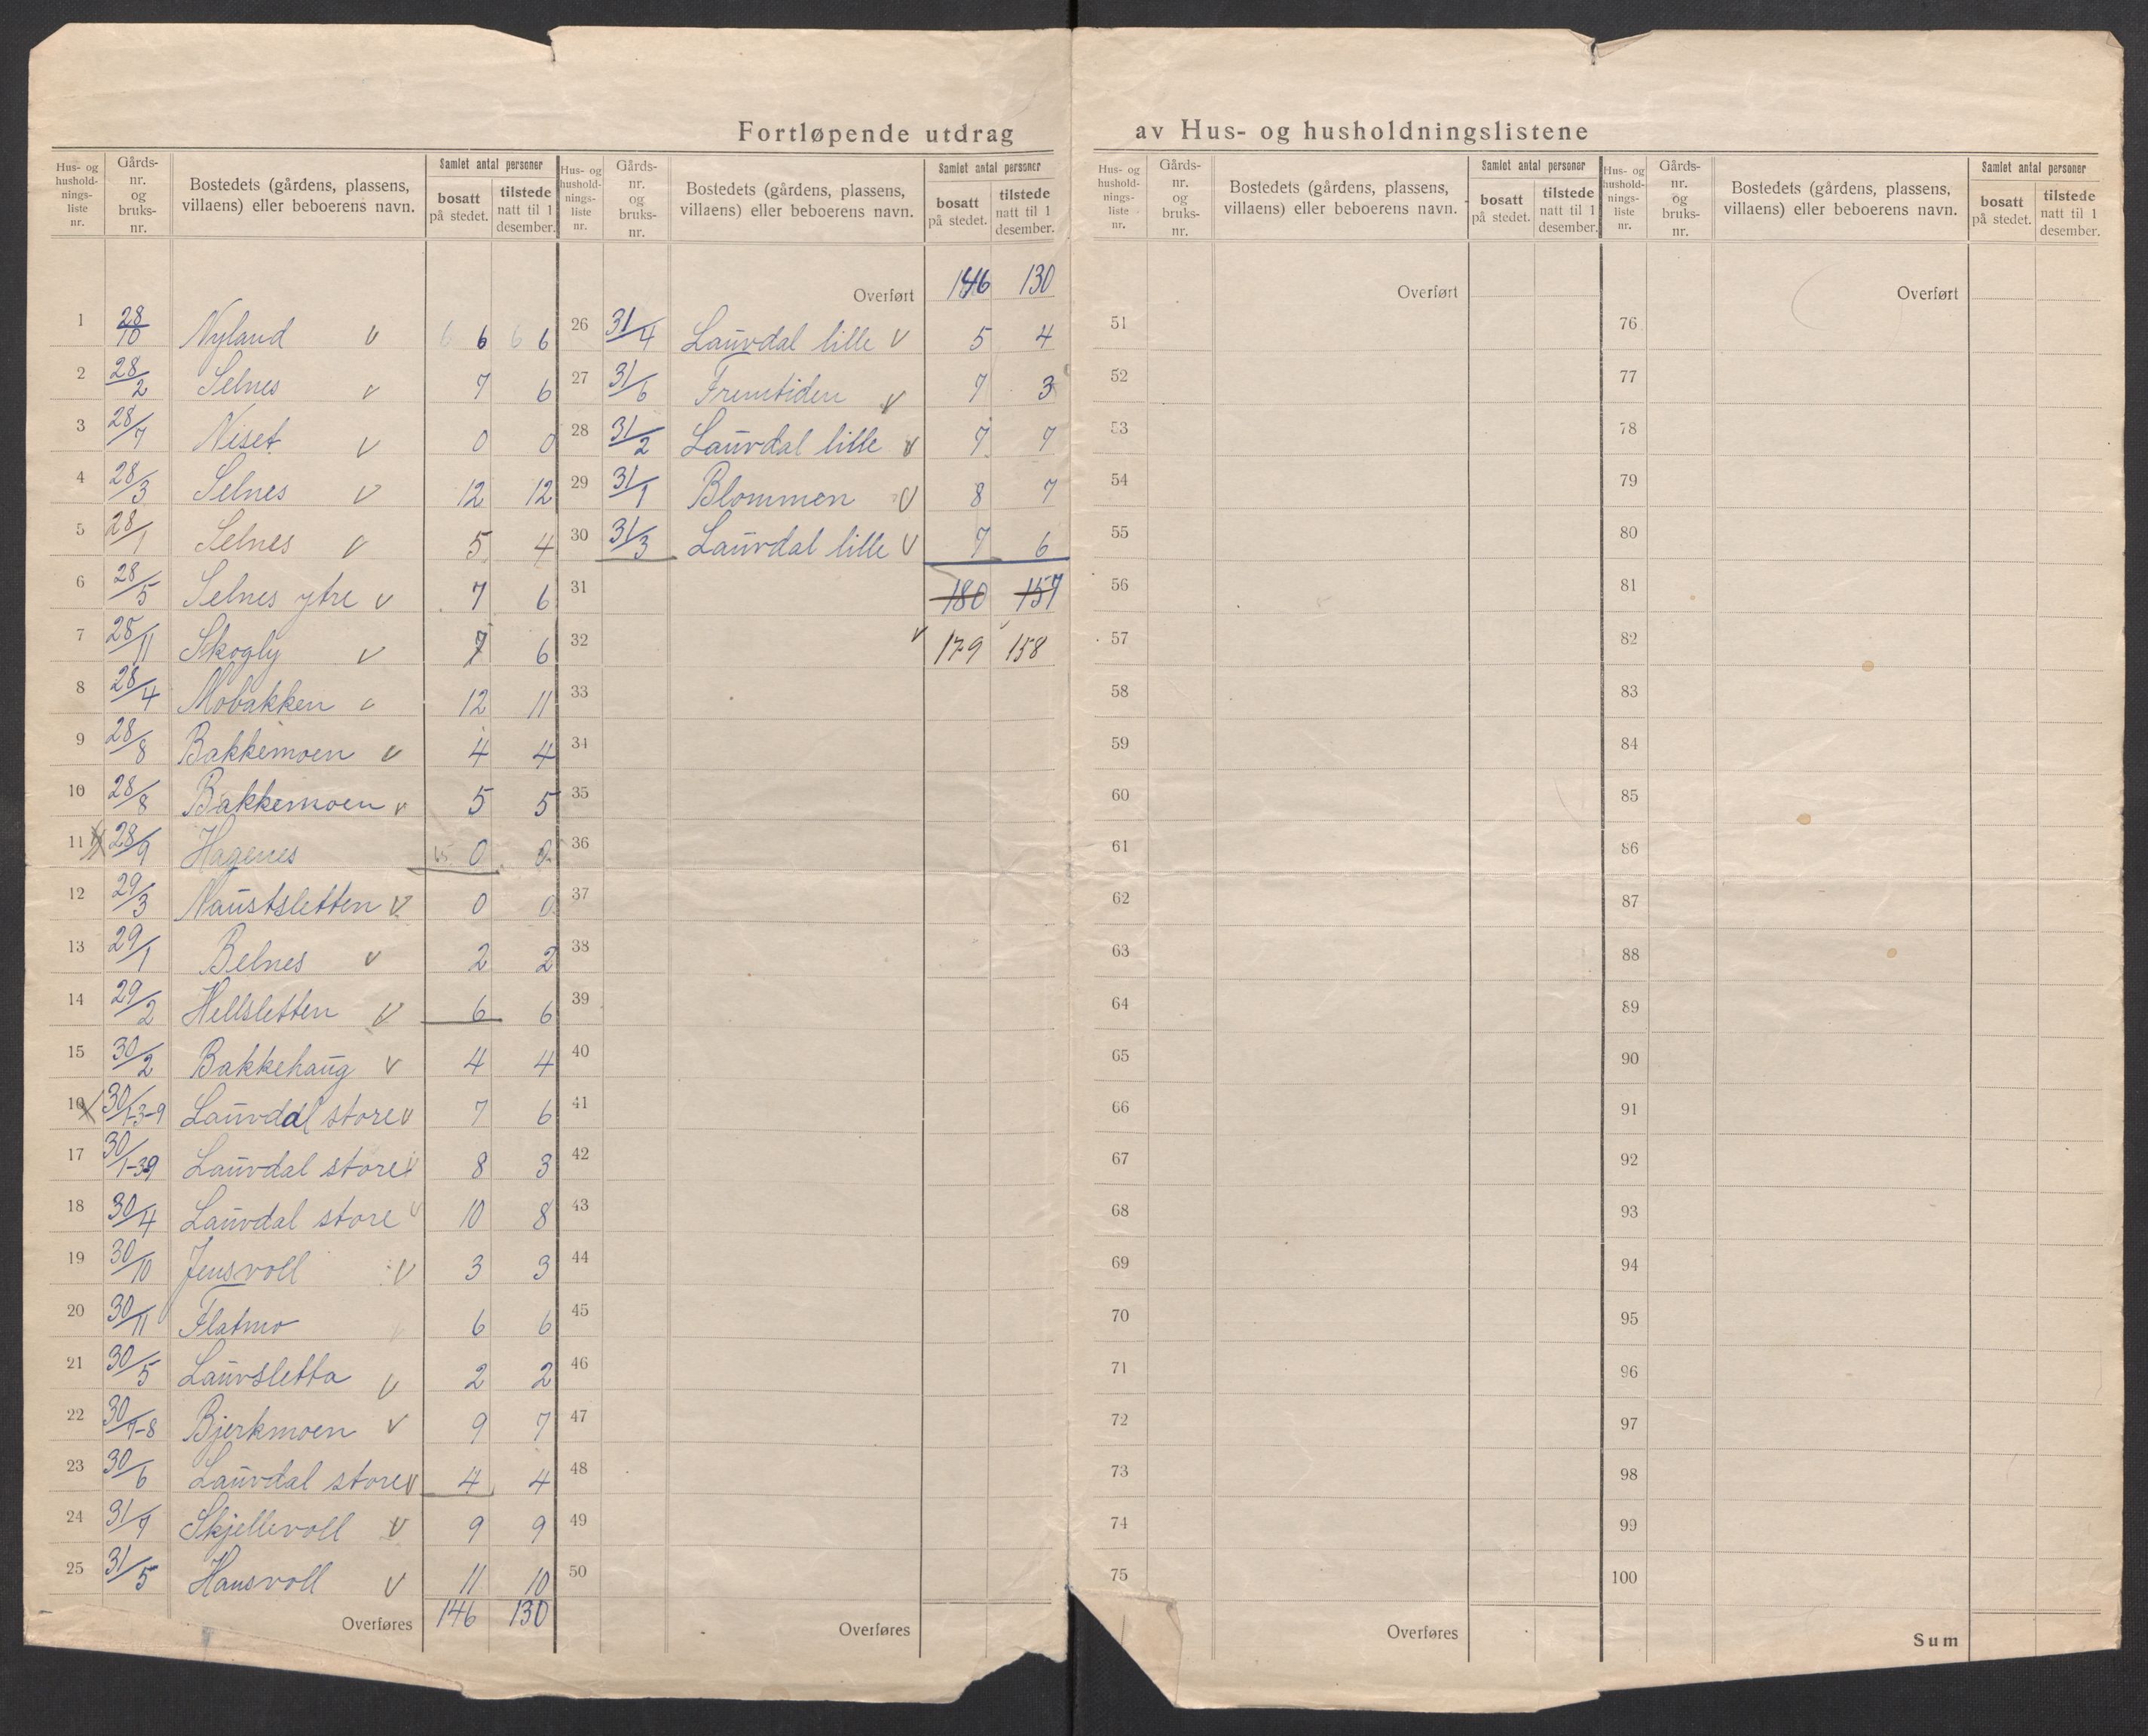 Fortløpende utdrag av Hus- og husholdningslistene
Hus- og husholdnings-liste nr. Gårds-nr. og bruks-nr. Bostedets (gårdens, plassens, villaens) eller beboerens navn. Samlet antal personer bosatt på stedet. tilstede natt til 1 desember.
1 28/10 Nyland v 6 6 6 6
2 28/2 Selnes v 7 6
3 28/7 Neset v 0 0
4 28/3 Selnes v 12 12
5 28/1 Selnes v 5 4
6 28/5 Selnes ytre v 7 6
7 28/11 Skogly v 7 6
8 28/4 Mobakken v 12 11
9 28/8 Bakkemoen v 4 4
10 28/8 Bakkemoen v 5 5
11 28/9 Hagenes 0 0
12 29/3 Naustsletten v 0 0
13 29/1 Belnes v 2 2
14 29/2 Hellsletten v 6 6
15 30/2 Bakkehaug v 4 4
16 30/1-3-9 Laurdal store v 7 6
17 30/1-39 Laurdal store v 8 3
18 30/4 Laurdal store v 10 8
19 30/10 Jensvoll v 3 3
20 30/11 Flatmo v 6 6
21 30/5 Laursletta v 2 2
22 30/7-8 Bjerkmoen v 9 7
23 30/6 Laurdal store v 4 4
24 31/7 Skjellevoll v 9 9
25 31/5 Hansvoll v 11 10
Overføres 146 130
Hus- og husholdnings-liste nr. Gårds-nr. og bruks-nr. Bostedets (gårdens, plassens, villaens) eller beboerens navn. Samlet antal personer bosatt på stedet. tilstede natt til 1 desember.
Overført 146 130
26 31/4 Laurdal lille v 5 4
27 31/6 Fremtiden v 7 3
28 31/2 Laurdal lille v 7 7
29 31/1 Blommen v 8 7
30 31/3 Laurdal lille v 7 6
31 180 157
32 v 179 158
33
34
35
36
37
38
39
40
41
42
43
44
45
46
47
48
49
50
Overføres
Hus- og husholdnings-liste nr. Gårds-nr. og bruks-nr. Bostedets (gårdens, plassens, villaens) eller beboerens navn. Samlet antal personer bosatt på stedet. tilstede natt til 1 desember.
Overført
51
52
53
54
55
56
57
58
59
60
61
62
63
64
65
66
67
68
69
70
71
72
73
74
75
Overføres
Hus- og husholdnings-liste nr. Gårds-nr. og bruks-nr. Bostedets (gårdens, plassens, villaens) eller beboerens navn. Samlet antal personer bosatt på stedet. tilstede natt til 1 desember.
Overført
76
77
78
79
80
81
82
83
84
85
86
87
88
89
90
91
92
93
94
95
96
97
98
99
100
Sum